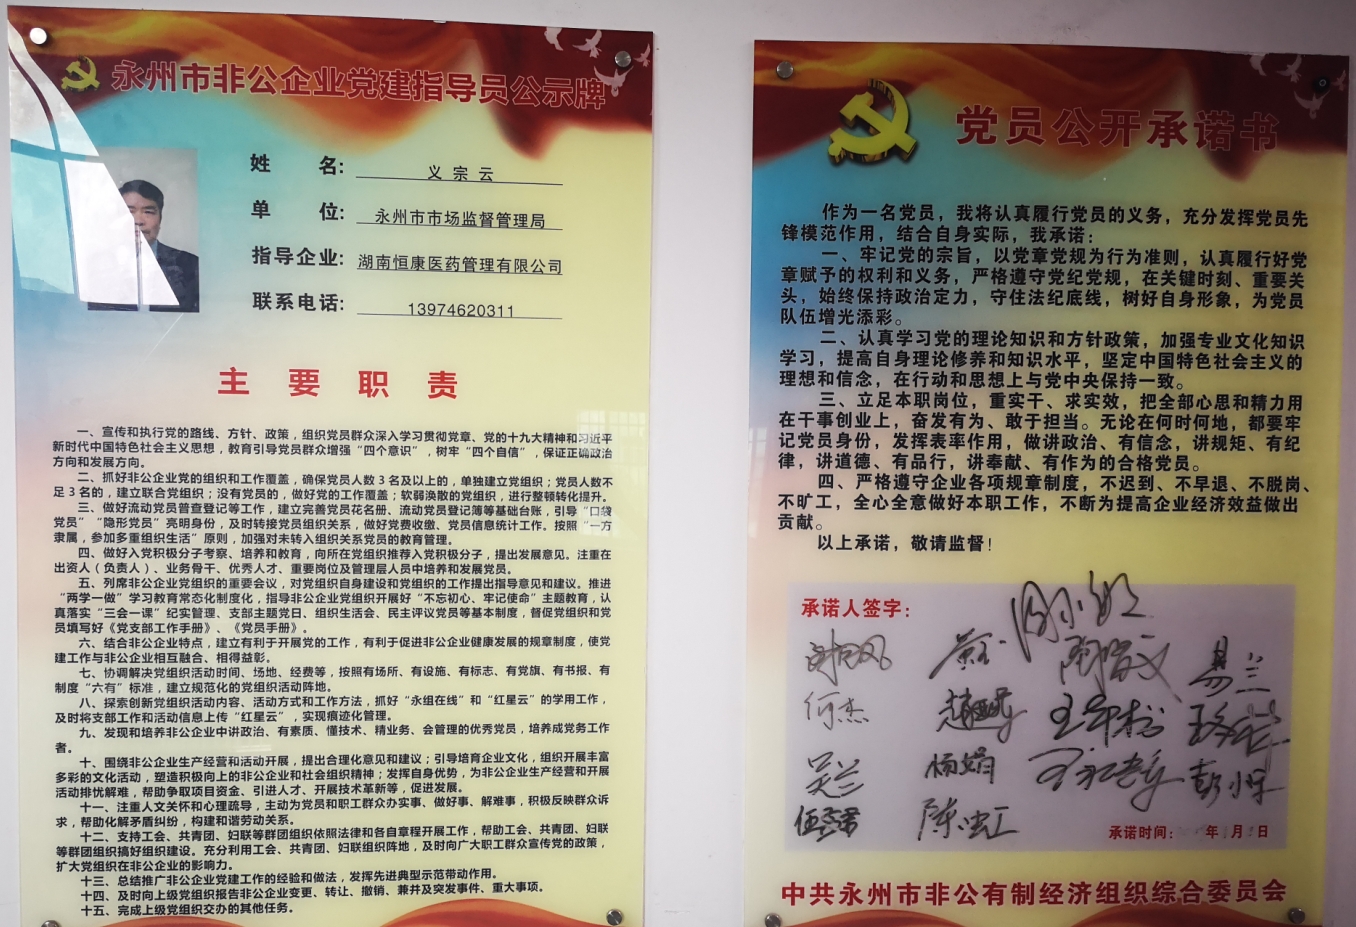 永州市非公企业党建指导员公示牌
姓 名: 义宗云
单 位: 永州市市场监督管理局
指导企业: 湖南恒康医药管理有限公司
联系电话: 13974620311
主要职责
一、宣传和执行党的路线、方针、政策，组织党员群众深入学习贯彻党章、党的十九大精神和习近平
新时代中国特色社会主义思想，教育引导党员群众增强“四个意识”，树牢“四个自信”，保证正确政治
方向和发展方向。
二、抓好非公企业党的组织和工作覆盖，确保党员人数3名及以上的，单独建立党组织；党员人数不
足3名的，建立联合党组织；没有党员的，做好党的工作覆盖；软弱涣散的党组织，进行整顿转化提升。
三、做好流动党员普查登记等工作，建立完善党员花名册、流动党员登记簿等基础台账，引导“口袋
党员”“隐形党员”亮明身份，及时转接党员组织关系，做好党费收缴、党员信息统计工作。按照“一方
隶属，参加多重组织生活”原则，加强对未转入组织关系党员的教育管理。
四、做好入党积极分子考察、培养和教育，向所在党组织推荐入党积极分子，提出发展意见。注重在
出资人（负责人）、业务骨干、优秀人才、重要岗位及管理层人员中培养和发展党员。
五、列席非公企业党组织的重要会议，对党组织自身建设和党组织的工作提出指导意见和建议。推进
“两学一做”学习教育常态化制度化，指导非公企业党组织开展好“不忘初心、牢记使命”主题教育，认
真落实“三会一课”纪实管理、支部主题党日、组织生活会、民主评议党员等基本制度，督促党组织和党
员填写好《党支部工作手册》、《党员手册》。
六、结合非公企业特点，建立有利于开展党的工作，有利于促进非公企业健康发展的规章制度，使党
建工作与非公企业相互融合、相得益彰。
七、协调解决党组织活动时间、场地、经费等，按照有场所、有设施、有标志、有党旗、有书报、有
制度“六有”标准，建立规范化的党组织活动阵地。
八、探索创新党组织活动内容、活动方式和工作方法，抓好“永组在线”和“红星云”的学用工作，
及时将支部工作和活动信息上传“红星云”，实现痕迹化管理。
九、发现和培养非公企业中讲政治、有素质、懂技术、精业务、会管理的优秀党员，培养成党务工作
者。
十、围绕非公企业生产经营和活动开展，提出合理化意见和建议；引导培育企业文化，组织开展丰富
多彩的文化活动，塑造积极向上的非公企业和社会组织精神；发挥自身优势，为非公企业生产经营和开展
活动排忧解难，帮助争取项目资金、引进人才、开展技术革新等，促进发展。
十一、注重人文关怀和心理疏导，主动为党员和职工群众办实事、做好事、解难事，积极反映群众诉
求，帮助化解矛盾纠纷，构建和谐劳动关系。
十二、支持工会、共青团、妇联等群团组织依照法律和各自章程开展工作，帮助工会、共青团、妇联
等群团组织搞好组织建设。充分利用工会、共青团、妇联组织阵地，及时向广大职工群众宣传党的政策，
扩大党组织在非公企业的影响力。
十三、总结推广非公企业党建工作的经验和做法，发挥先进典型示范带动作用。
十四、及时向上级党组织报告非公企业变更、转让、撤销、兼并及突发事件、重大事项。
十五、完成上级党组织交办的其他任务。
党员公开承诺书
作为一名党员，我将认真履行党员的义务，充分发挥党员先
锋模范作用，结合自身实际，我承诺：
一、牢记党的宗旨，以党章党规为行为准则，认真履行好党
章赋予的权利和义务，严格遵守党纪党规，在关键时刻、重要关
头，始终保持政治定力，守住法纪底线，树好自身形象，为党员
队伍增光添彩。
二、认真学习党的理论知识和方针政策，加强专业文化知识
学习，提高自身理论修养和知识水平，坚定中国特色社会主义的
理想和信念，在行动和思想上与党中央保持一致。
三、立足本职岗位，重实干、求实效，把全部心思和精力用
在干事创业上，奋发有为、敢于担当。无论在何时何地，都要牢
记党员身份，发挥表率作用，做讲政治、有信念，讲规矩、有纪
律，讲道德、有品行，讲奉献、有作为的合格党员。
四、严格遵守企业各项规章制度，不迟到、不早退、不脱岗、
不旷工，全心全意做好本职工作，不断为提高企业经济效益做出
贡献。
以上承诺，敬请监督！
承诺人签字：
易兰
何杰
吴兰 杨娟 彭小
陈
承诺时间： 年 月 日
中共永州市非公有制经济组织综合委员会